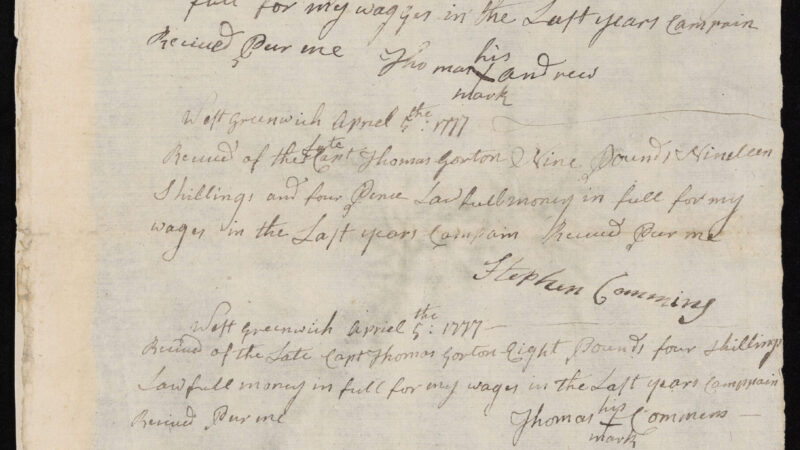 full for my wages in the Last years Campain
Recived Pur me
his
Thomas X Andrew
mark
West Greenwich Apriel 5the: 1777
Late
Recived of the Capt Thomas Gorton Nine Pounds Nineteen
Shillings and four Pence Lawfull money in full for my
wages in the Last years Campain Recived Pur me
Stephen Comming
West Greenwich Apriel 5the: 1777
Recived of the Late Capt Thomas Gorton Eight Pounds four Shillings
Lawfull money in full for my wages in the Last years Camppain
Recived Pur me
his
Thomas X Commens
mark